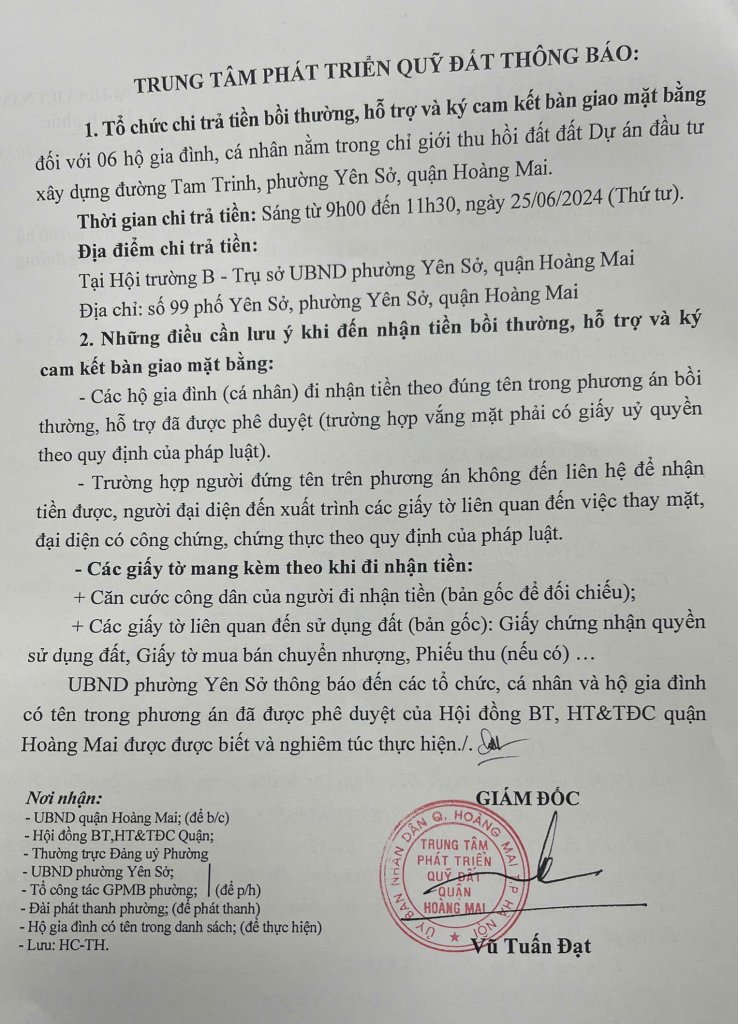 TRUNG TÂM PHÁT TRIỂN QUỸ ĐẤT THÔNG BÁO:
1. Tổ chức chi trả tiền bồi thường, hỗ trợ và ký cam kết bàn giao mặt bằng
đối với 06 hộ gia đình, cá nhân nằm trong chỉ giới thu hồi đất đất Dự án đầu tư
xây dựng đường Tam Trinh, phường Yên Sở, quận Hoàng Mai.
Thời gian chi trả tiền: Sáng từ 9h00 đến 11h30, ngày 25/06/2024 (Thứ tư).
Địa điểm chi trả tiền:
Tại Hội trường B - Trụ sở UBND phường Yên Sở, quận Hoàng Mai
Địa chỉ: số 99 phố Yên Sở, phường Yên Sở, quận Hoàng Mai
2. Những điều cần lưu ý khi đến nhận tiền bồi thường, hỗ trợ và ký
cam kết bàn giao mặt bằng:
- Các hộ gia đình (cá nhân) đi nhận tiền theo đúng tên trong phương án bồi
thường, hỗ trợ đã được phê duyệt (trường hợp vắng mặt phải có giấy uỷ quyền
theo quy định của pháp luật).
- Trường hợp người đứng tên trên phương án không đến liên hệ để nhận
tiền được, người đại diện đến xuất trình các giấy tờ liên quan đến việc thay mặt,
đại diện có công chứng, chứng thực theo quy định của pháp luật.
- Các giấy tờ mang kèm theo khi đi nhận tiền:
+ Căn cước công dân của người đi nhận tiền (bản gốc để đối chiếu);
+ Các giấy tờ liên quan đến sử dụng đất (bản gốc): Giấy chứng nhận quyền
sử dụng đất, Giấy tờ mua bán chuyển nhượng, Phiếu thu (nếu có) …
UBND phường Yên Sở thông báo đến các tổ chức, cá nhân và hộ gia đình
có tên trong phương án đã được phê duyệt của Hội đồng BT, HT&TĐC quận
Hoàng Mai được được biết và nghiêm túc thực hiện./.
Nơi nhận:
- UBND quận Hoàng Mai; (để b/c)
- Hội đồng BT,HT&TĐC Quận;
- Thường trực Đảng uỷ Phường
- UBND phường Yên Sở;
- Tổ công tác GPMB phường; (để p/h)
- Đài phát thanh phường; (để phát thanh)
- Hộ gia đình có tên trong danh sách; (để thực hiện)
- Lưu: HC-TH.
GIÁM ĐỐC
ỦY BAN NHÂN DÂN Q. HOÀNG MAI T.P HÀ NỘI
TRUNG TÂM
PHÁT TRIỂN
QUỸ ĐẤT
QUẬN
HOÀNG MAI
Vũ Tuấn Đạt